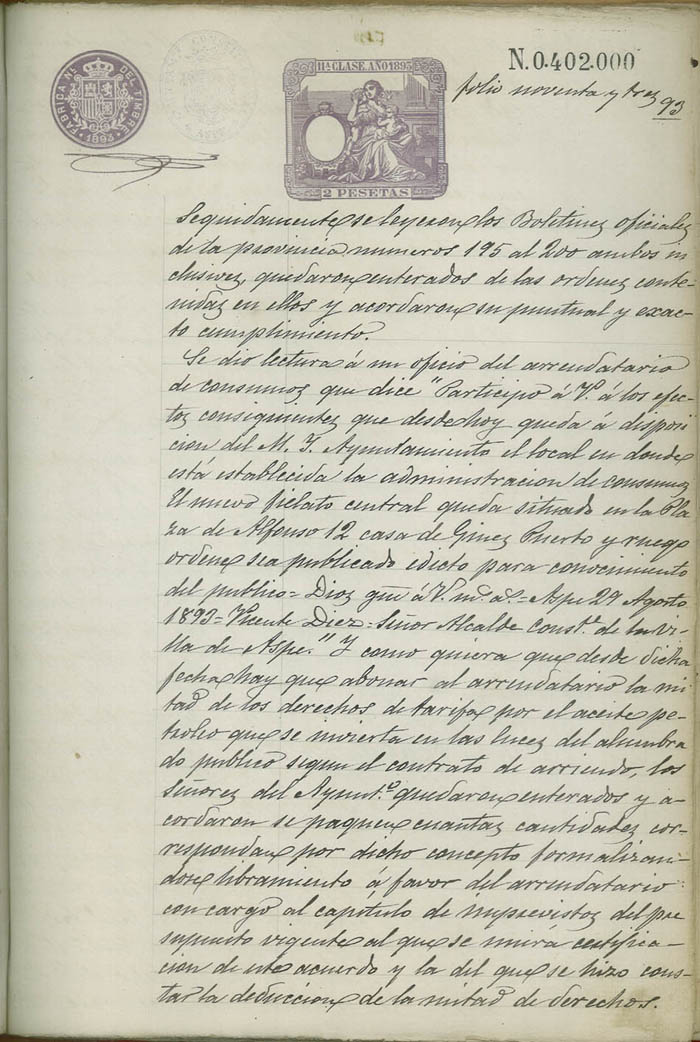 FABRICA Nl. DEL TIMBRE
1893
11ª CLASE. AÑO 1893
2 PESETAS
N.0.402.000
folio noventa y tres 93
Seguidamente se leyeron los Boletines oficiales
de la provincia numeros 195 al 200 ambos in
clusives, quedaron enterados de las ordenes conte-
nidas en ellos y acordaron su puntual y exac-
to cumplimiento.
Se dio lectura á un oficio del arrendatario
de consumos que dice "Participo á V. á los efec-
tos consiguientes que desde hoy queda á disposi
cion del M. I. Ayuntamiento el local en donde
está establecida la administracion de consumos
El nuevo fielato central queda situado en la Pla
za de Alfonso 12 casa de Gines Puerto y ruego
ordene sea publicado idicto para conocimiento
del publico = Dios gue á V. ms. as. = Aspe 29 Agosto
1893 = Vicente Diez = Señor Alcalde Constl. de la vi
lla de Aspe." Y como quiera que desde dicha
fecha hay que abonar al arrendatario la mi
tad de los derechos de tarifa por el aceite pe-
troleo que se invierta en las luces del alumbra
do publico segun el contrato de arriendo, los
Señores del Ayuntº. quedaron enterados y a-
cordaron se paguen cuantas cantidades cor-
respondan por dicho concepto formalizan-
dose libramiento á favor del arrendatario
con cargo al capitulo de imprevistos del pre
supuesto vigente al que se unirá certifica-
cion de este acuerdo y la del que se hizo cons-
tar la deduccion de la mitad de derechos.